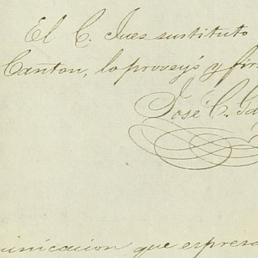 El C. Jues sustituto
Canton, lo proveyó y fir
José C. Ga
unicacion que espresa